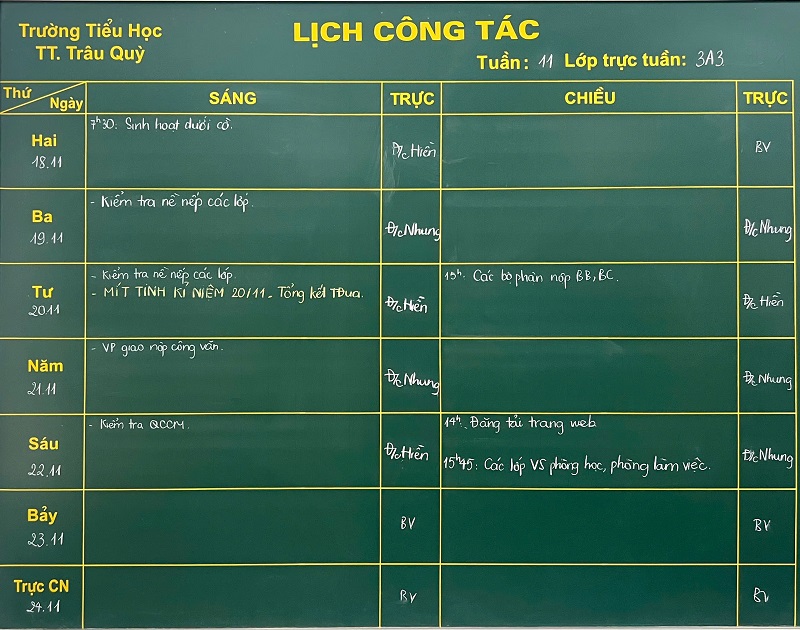 Trường Tiểu Học
TT. Trâu Quỳ
LỊCH CÔNG TÁC
Tuần: 11 Lớp trực tuần: 3A3
Thứ Ngày
SÁNG
TRỰC
CHIỀU
TRỰC
Hai
18.11
7h30: Sinh hoạt dưới cờ.
Đ/c Hiền
BV
Ba
19.11
- Kiểm tra nề nếp các lớp.
Đ/c Nhung
Đ/c Nhung
Tư
20.11
- Kiểm tra nề nếp các lớp.
- MÍT TINH KỈ NIỆM 20/11 - Tổng kết TĐua.
Đ/c Hiền
15h: Các bộ phận nộp BB, BC.
Đ/c Hiền
Năm
21.11
- VP giao nộp công văn.
Đ/c Nhung
Đ/c Nhung
Sáu
22.11
- Kiểm tra QCCM.
Đ/c Hiền
14h: Đăng tải trang web
15h45: Các lớp VS phòng học, phòng làm việc.
Đ/c Nhung
Bảy
23.11
BV
BV
Trực CN
24.11
BV
BV